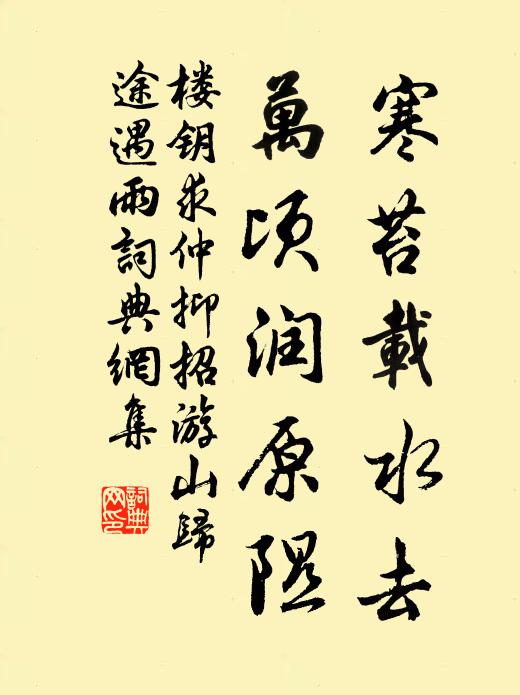 寒苔載水去
萬顷润原隰
楼钥求仲抑招游山歸
途遇雨詞典網集
詞典网印